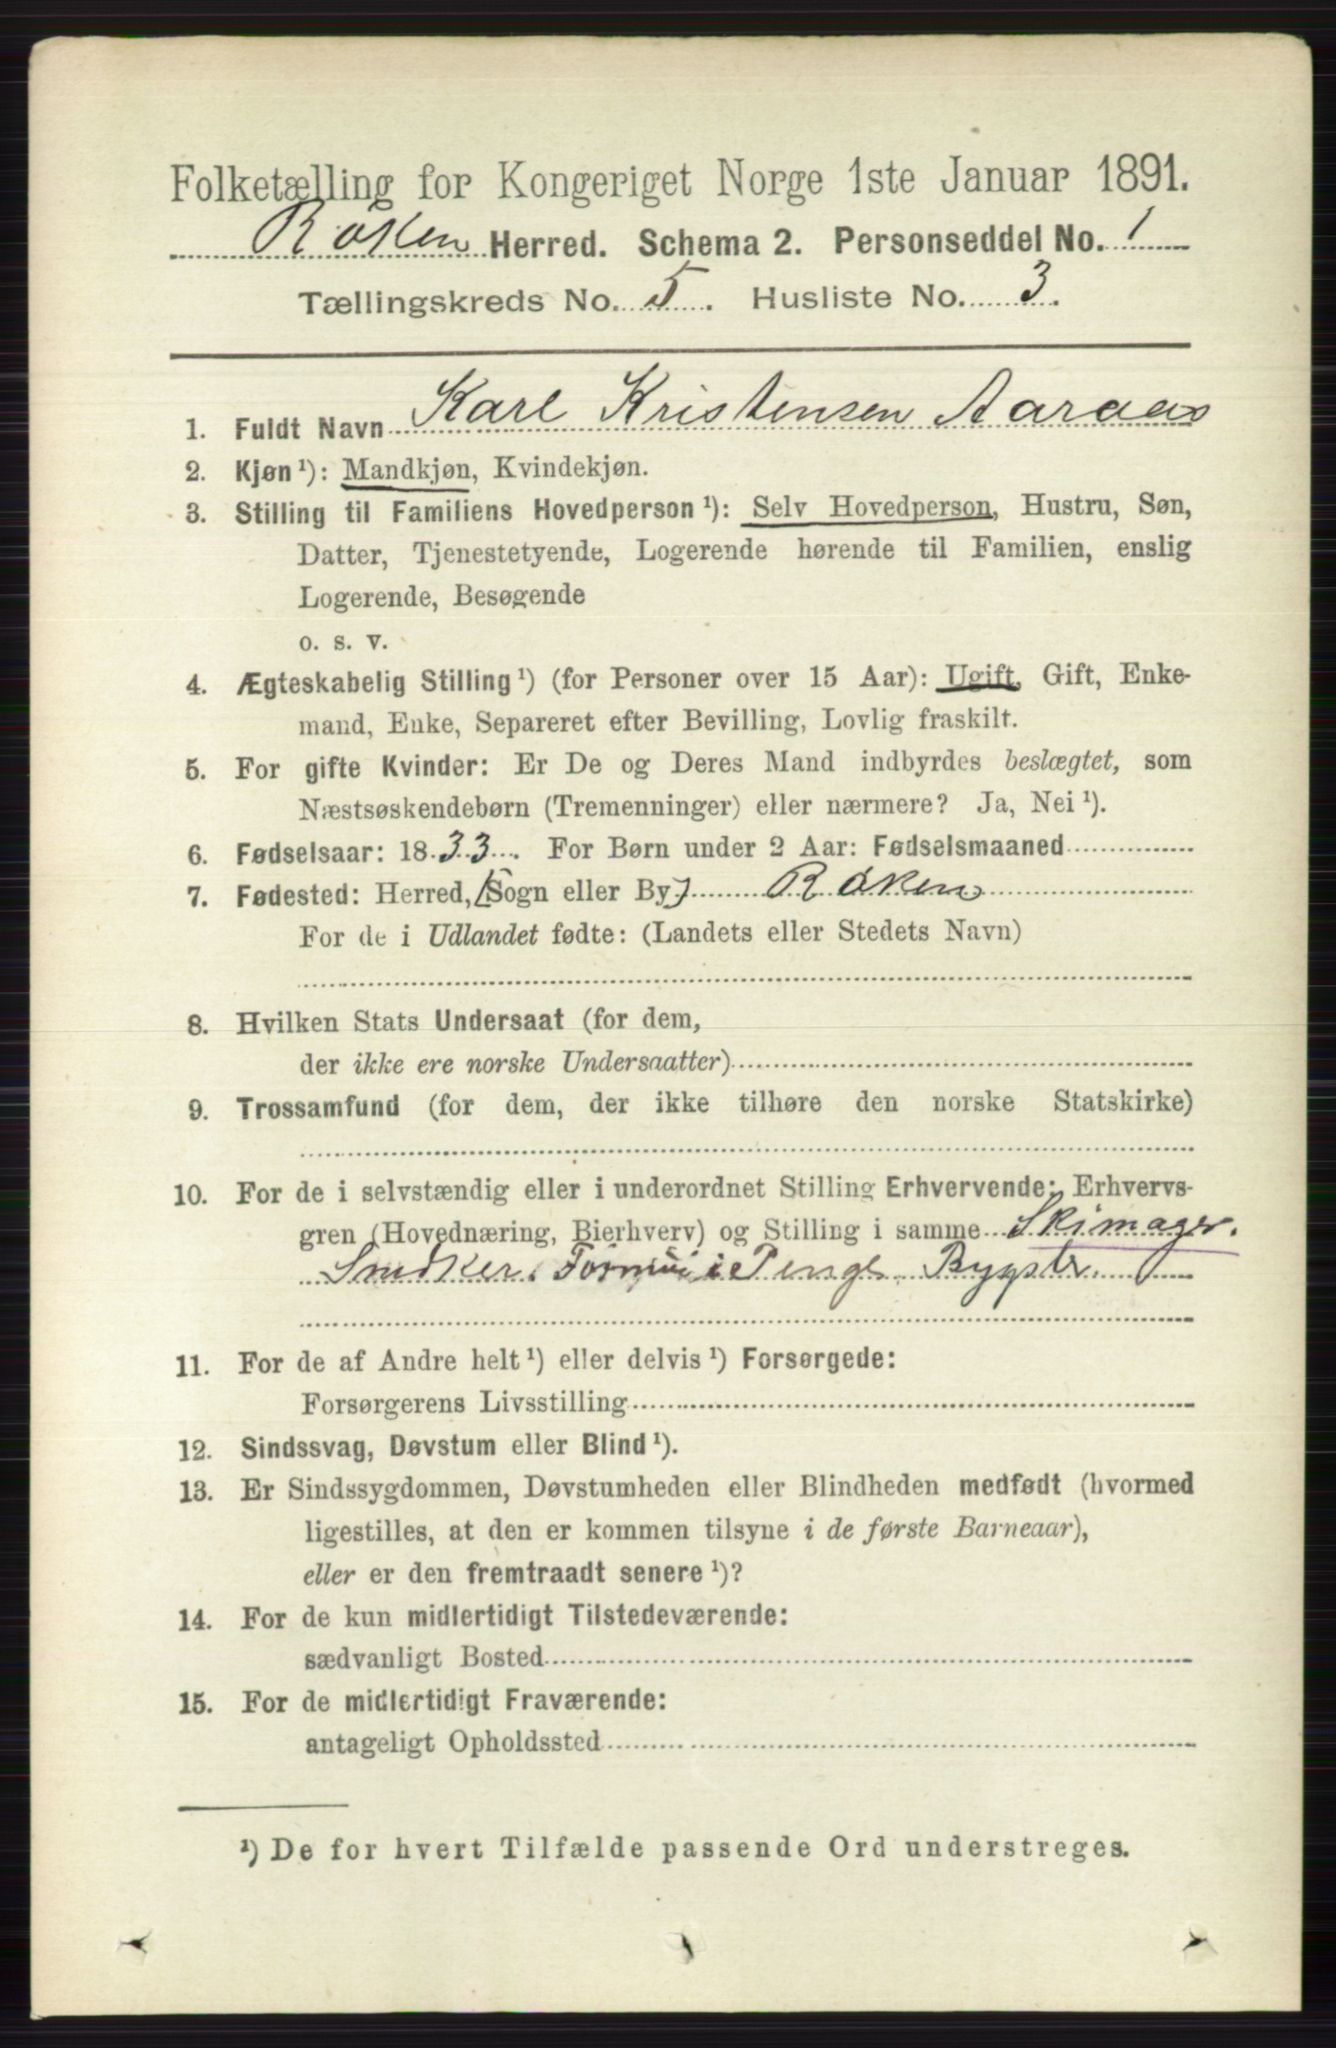 Folketælling for Kongeriget Norge 1ste Januar 1891.
Røken Herred. Schema 2. Personseddel No. 1
Tællingskreds No. 5. Husliste No. 3.
1. Fuldt Navn Karl Kristensen Aaraas
2. Kjøn ¹): Mandkjøn, Kvindekjøn.
3. Stilling til Familiens Hovedperson ¹): Selv Hovedperson, Hustru, Søn,
Datter, Tjenestetyende, Logerende hørende til Familien, enslig
Logerende, Besøgende
o. s. v.
4. Ægteskabelig Stilling ¹) (for Personer over 15 Aar): Ugift, Gift, Enke-
mand, Enke, Separeret efter Bevilling, Lovlig fraskilt.
5. For gifte Kvinder: Er De og Deres Mand indbyrdes beslægtet, som
Næstsøskendebørn (Tremenninger) eller nærmere? Ja, Nei ¹).
6. Fødselsaar: 1833. For Børn under 2 Aar: Fødselsmaaned
7. Fødested: Herred, [Sogn eller By] Røken
For de i Udlandet fødte: (Landets eller Stedets Navn)
8. Hvilken Stats Undersaat (for dem,
der ikke ere norske Undersaatter)
9. Trossamfund (for dem, der ikke tilhøre den norske Statskirke)
10. For de i selvstændig eller i underordnet Stilling Erhvervende: Erhvervs-
gren (Hovednæring, Bierhverv) og Stilling i samme Skimager.
Snedker. i Penge
11. For de af Andre helt ¹) eller delvis ¹) Forsørgede:
Forsørgerens Livsstilling
12. Sindssvag, Døvstum eller Blind ¹).
13. Er Sindssygdommen, Døvstumheden eller Blindheden medfødt (hvormed
ligestilles, at den er kommen tilsyne i de første Barneaar),
eller er den fremtraadt senere ¹)?
14. For de kun midlertidigt Tilstedeværende:
sædvanligt Bosted
15. For de midlertidigt Fraværende:
antageligt Opholdssted
¹) De for hvert Tilfælde passende Ord understreges.